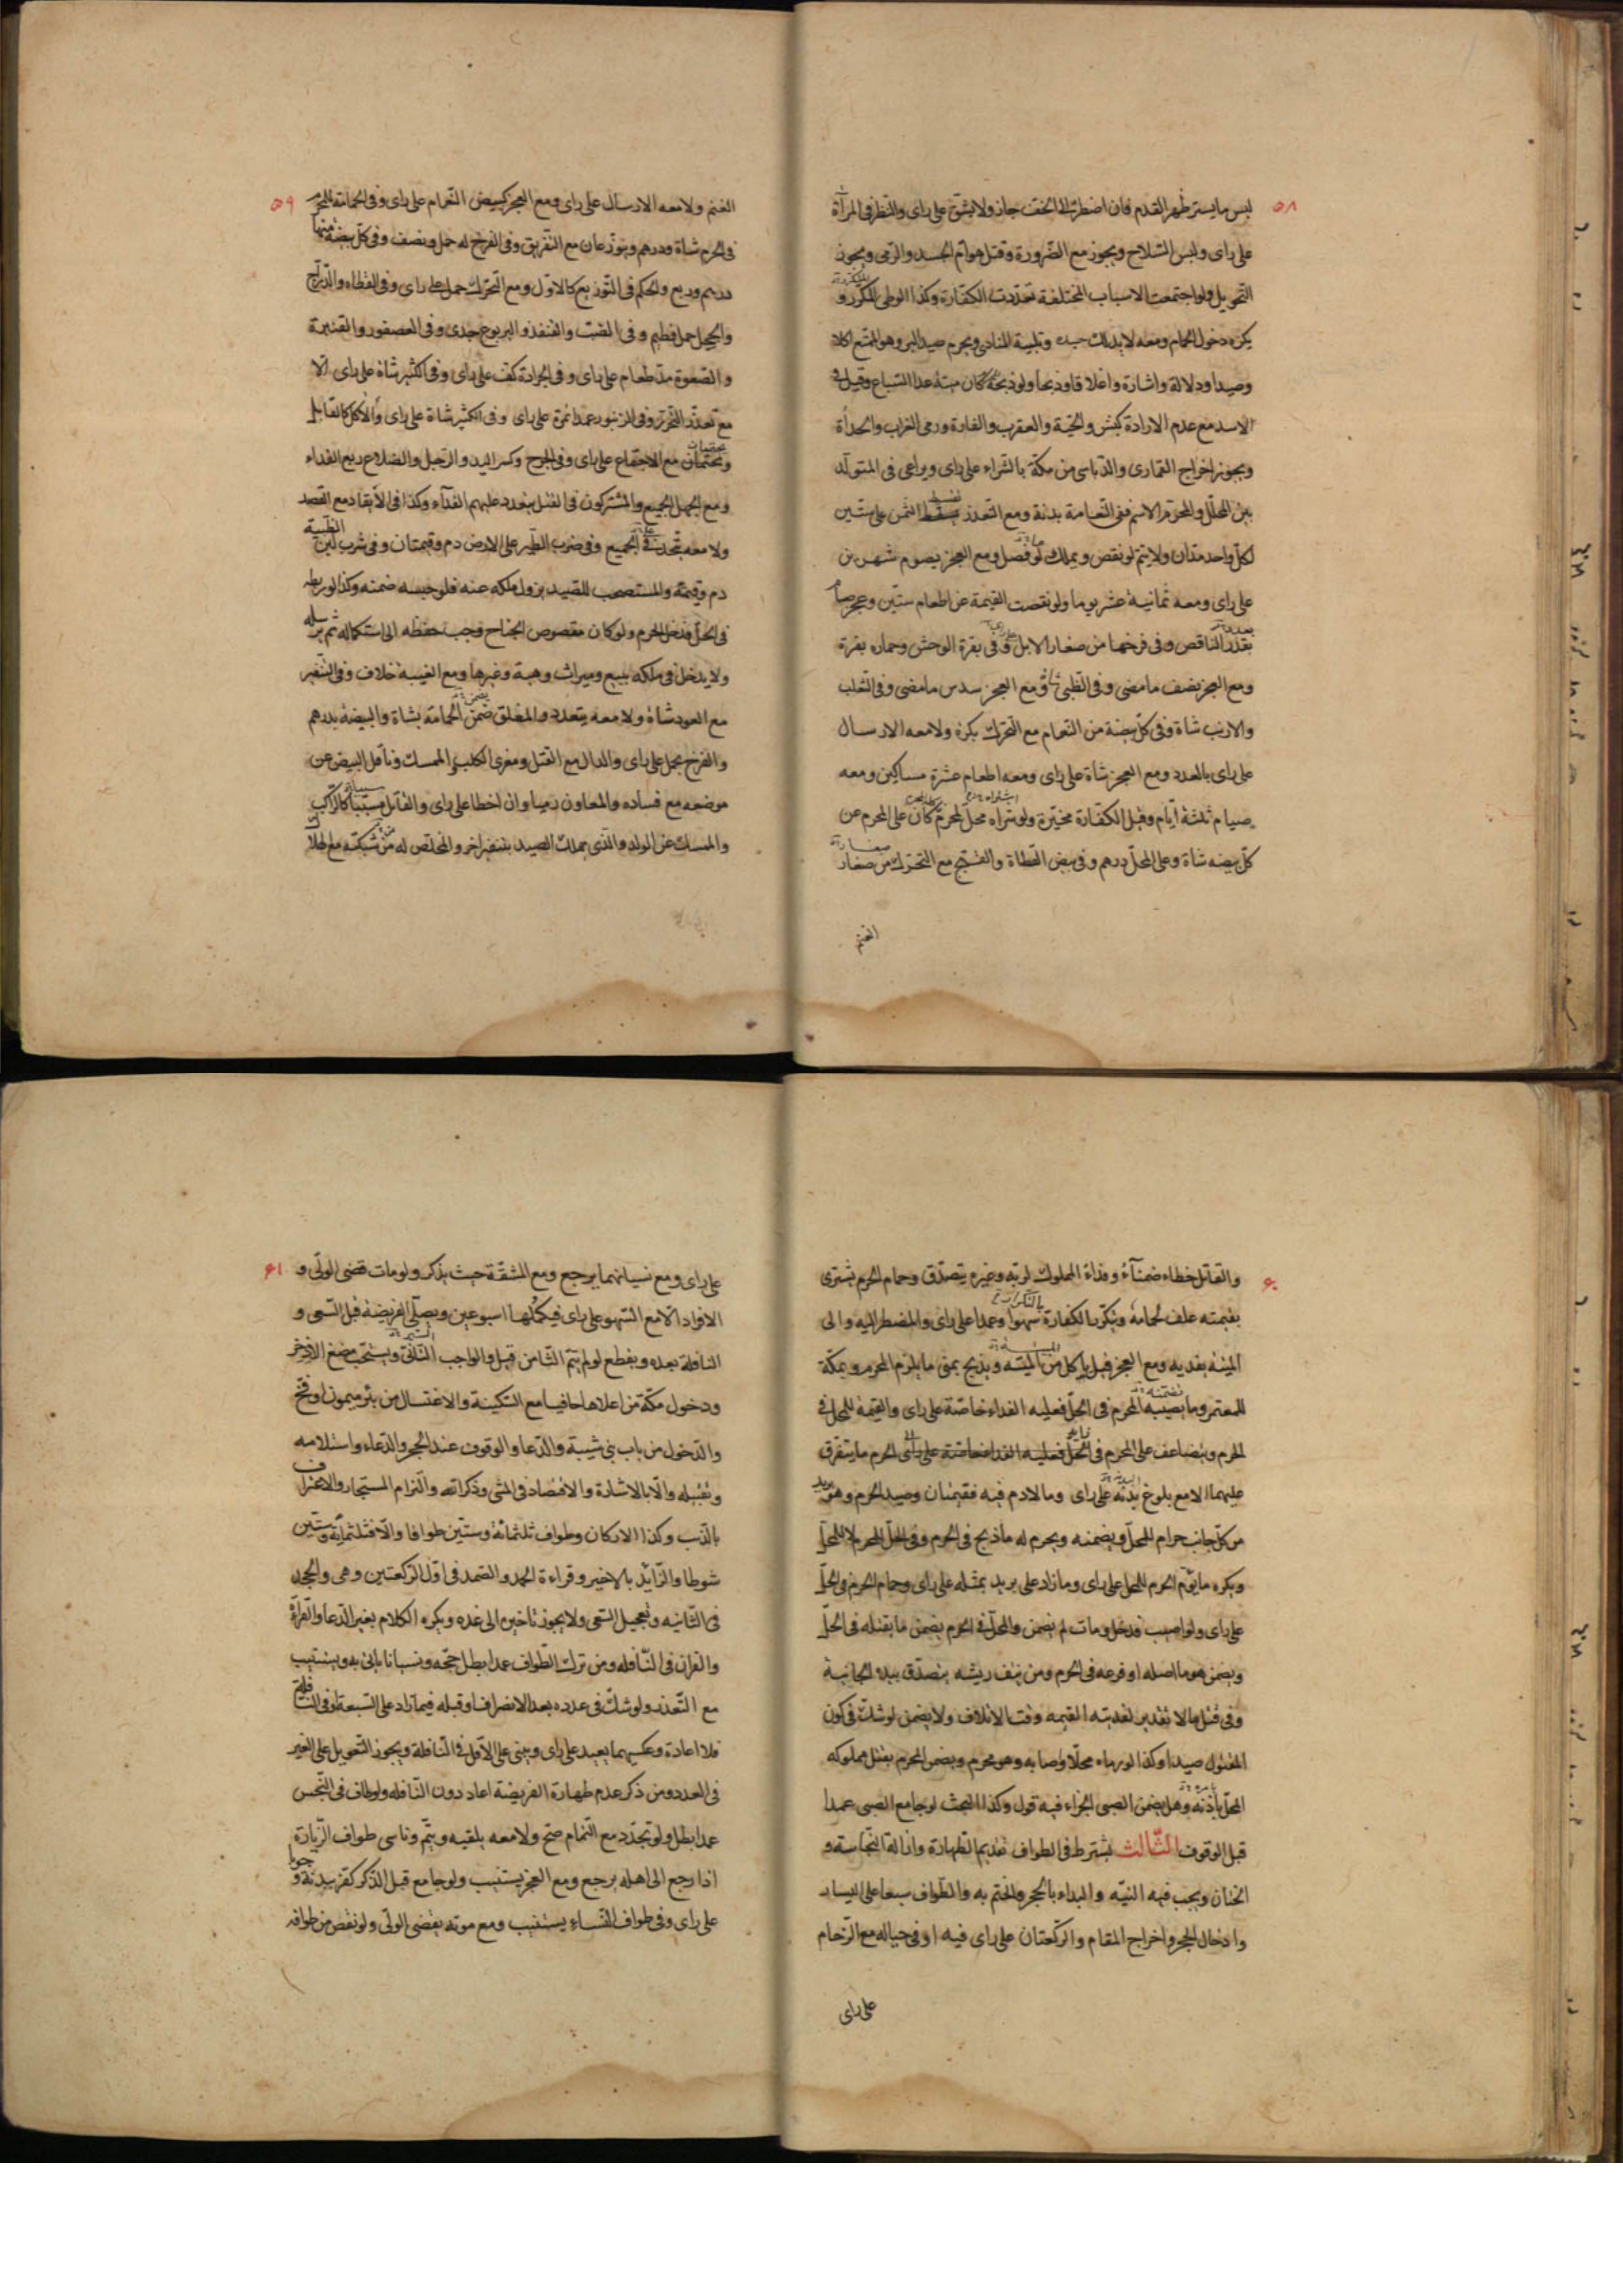 ٥٨
لبس ما يستر ظهر القدم فان اضطر الى الخف جاز ولا يشق على راى والنظر فى المرآة
على راى ولبس السّلاح ويجوز مع الضّرورة وقتل هوامّ الجسد والرّمى ويجوز
التحويل ولو اجتمعت الاسباب المختلفة تعدّدت الكفّارة وكذا الوطى المكرّر و
يكره دخول الحمام ومعه لا يدلك جسده وتلبية المنادى ويحرم صيد البر وهو الممتنع اكلا
وصيدا ودلالة واشارة واغلاقا وذبحا ولو ذبحه كان ميتة عدا السّباع وقيل فى
الاسد مع عدم الارادة كبش والحيّة والعقرب والفارة ورمى الغراب والحدأة
ويجوز اخراج القمارى والدّباسى من مكّة بالشّراء على راى ويراعى فى المتولّد
بين المحلّل والمحرّم الاسم ففى النّعامة بدنة ومع التعذر يسقط الثمن على ستين
لكلّ واحد مدّان ولا يتمّ لو نقص ويملك لو فضل ومع العجز يصوم شهرين
على راى ومعه ثمانية عشر يوما ولو نقصت القيمة عن اطعام ستّين وعجز صام
بقدر الناقص وفى فرخها من صغار الابل وفى بقرة الوحش وحماره بقرة
ومع العجز نصف ما مضى وفى الظبى شاة ومع العجز سدس ما مضى وفى الثعلب
والارنب شاة وفى كلّ بيضة من النّعام مع التحرك بكرة ولا معه الارسال
على راى بالعدد ومع العجز شاة على راى ومعه اطعام عشرة مساكين ومعه
صيام ثلثة ايّام وقيل الكفّارة مخيّرة ولو شراه محلّ لمحرم كان على المحرم عن
كلّ بيضه شاة وعلى المحلّ درهم وفى بيض القطاة والقبج مع التحرك من صغار
الغنم
٥٩
الغنم ولا معه الارسال على راى ومع العجز كبيض النّعام على راى وفى الحمامة للمحرم
فى الحرم شاة ودرهم ويوزّعان مع التفريق وفى الفرخ له حمل ونصف وفى كلّ بيضة منها
درهم وربع والحكم فى التوزيع كالاوّل ومع التحرك حمل على راى وفى القطاه والدّرّاج
والحجل حمل فطيم وفى الضب والقنفذ واليربوع جدى وفى العصفور والقنبرة
والصّعوة مدّ طعام على راى وفى الجرادة كف على راى وفى الكثير شاة على راى الّا
مع تعذّر التحرّز وفى الزنبور عمدا تمرة على راى وفى الكثير شاة على راى والاكل كالقاتل
مع الاجتماع على راى وفى الجرح وكسر اليد والرّجل والضلاع ربع الفداء
ومع الجهل الجميع والمشتركون فى القتل يتعدد عليهم الفدآء وكذا فى الايقاد مع القصد
ولا معه يتّحد فى الجميع وفى ضرب الطّير على الارض دم وقيمتان وفى شرب لبن الظبية
دم وقيمته والمستصحب للصّيد يزول ملكه عنه فلو حبسه ضمنه وكذا لو ربطه
فى الحلّ فدخل الحرم ولو كان مقصوص الجناح وجب حفظه الى استكماله ثم يرسله
ولا يدخل فى ملكه ببيع وميراث وهبة وغيرها ومع الغيبة خلاف وفى التنفير
مع العود شاة ولا معه يتعدد والمغلق ضمن الحمامة بشاة والبيضة بدرهم
والفرخ بحمل على راى والدال مع القتل ومغرى الكلب والممسك وناقل البيض عن
موضعه مع فساده والمعاون رميا وان اخطا على راى والقاتل مسبّبا كالرّاكب
والممسك عن الولد والذى يهلك الصيد بتنفير اخر والمخلّص له من شبكته مع الهلاك
٦٠
والقاتل خطاء ضمنآء وفداء المملوك لربّه وغيره يتصدّق وحمام الحرم يشترى
بقيمته علف لحمامه وتكرّر الكفارة سهوا وعمدا على راى والمضطر اليه والى
الميتة يفديه ومع العجز قيل ياكل من الميتة ويذبح بمنى ما يلزم المحرم وبمكّة
للمعتمر وما يصيبه المحرم فى الحلّ فعليه الفداء خاصّة على راى والقيمة للمحل فى
الحرم ويتضاعف على المحرم فى الحلّ فعليه الفداء خاصّة على راى الحرم ما يتفرّق
عليهما الا مع بلوغ بدنة على راى وما لا دم فيه فقيمتان وصيد الحرم وهو بريد
من كلّ جانب حرام للمحلّ ويضمنه ويحرم له ما ذبح فى الحرم وفى الحلّ للمحرم لا للمحلّ
ويكره ما يؤم الحرم للمحل على راى وما زاد على بريد بمثله على راى وحمام الحرم فى الحلّ
على راى ولو اصيب فدخل ومات لم يضمن والمحلّ فى الحرم يضمن ما يقتله فى الحلّ
ويضمن هو ما اصله او فرعه فى الحرم ومن نتف ريشه يتصدّق بيد الجانية
وفى قتل ما لا تقدير لفديته القيمه وقت الاتلاف ولا يضمن لو شكّ فى كون
المقتول صيدا وكذا لو رماه محلّا واصابه وهو محرم ويضمن المحرم بقتل مملوكه
المحلّ باذنه وهل يضمن الصبى الجزاء فيه قول وكذا البحث لو جامع الصبى عمدا
قبل الوقوف الثّالث يشترط فى الطواف تقديم الطهارة وازالة النّجاسة و
الختان ويجب فيه النيّه والبداء بالحجر والختم به والطّواف سبعا على اليسار
وادخال الحجر واخراج المقام والرّكعتان على راى فيه او فى حياله مع الزّحام
على راى
٦١
على راى ومع نسيانهما يرجع ومع المشقّة حيث يذكر ولو مات قضى الولّى و
الافراد الا مع السّهو على راى فيكمّلها اسبوعين ويصلّى الفريضة قبل السّعى و
النافلة بعده ويقطع لو لم يتم الثّامن قيل والواجب الثّانى ويستحب مضغ الاذخر
ودخول مكّة من اعلاها حافيا مع السّكينة والاغتسال من بئر ميمون او فخّ
والدّخول من باب بنى شيبة والدّعا والوقوف عند الحجر والدّعاء واستلامه
وتقبيله والّا بالاشارة والاقتصاد فى المشى وذكر الله والتزام المستجار والاعتراف
بالذّنب وكذا الاركان وطواف ثلثمائة وستّين طوافا والّا فثلثمائة وستّين
شوطا والزّايد بالاخير وقراءة الحمد والصّمد فى اوّل الرّكعتين وهى والجحد
فى الثّانيه وتعجيل السّعى ولا يجوز تاخيره الى غده ويكره الكلام بغير الدّعا والقرآة
والقران فى النّافله ومن ترك الطّواف عمدا بطل حجّه ونسيانا ياتى به ويستنيب
مع التّعذر ولو شكّ فى عدده بعد الانصراف او قبله فيما زاد على السّبعة او فى النّافلة
فلا اعادة وعكسهما يعيد على راى ويبنى على الاقل فى النّافلة ويجوز التعويل على الغير
فى العدد ومن ذكر عدم طهارة الفريضة اعاد دون النّافله ولو طاف فى النّجس
عمدا بطل ولو تجدّد مع التّمام صحّ ولا معه يلقيه ويتمّ وناسى طواف الزّيارة
اذا رجع الى اهله يرجع ومع العجز يستنيب ولو جامع قبل الذّكر كفّر ببدنة وجوبا
على راى وفى طواف النّساء يستنيب ومع موته يقضى الولّى ولو نقص من طوافه